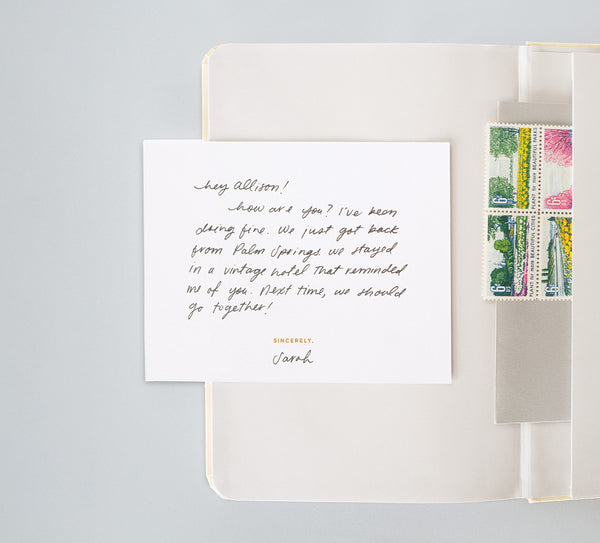 hey Allison!
how are you? I've been
doing fine. We just got back
from Palm Springs. we stayed
in a vintage hotel that reminded
me of you. Next time, we should
go together!
SINCERELY,
Sarah
PLANT for more BEAUTIFUL PARKS
6¢
PLANT for more BEAUTIFUL CITIES
6¢